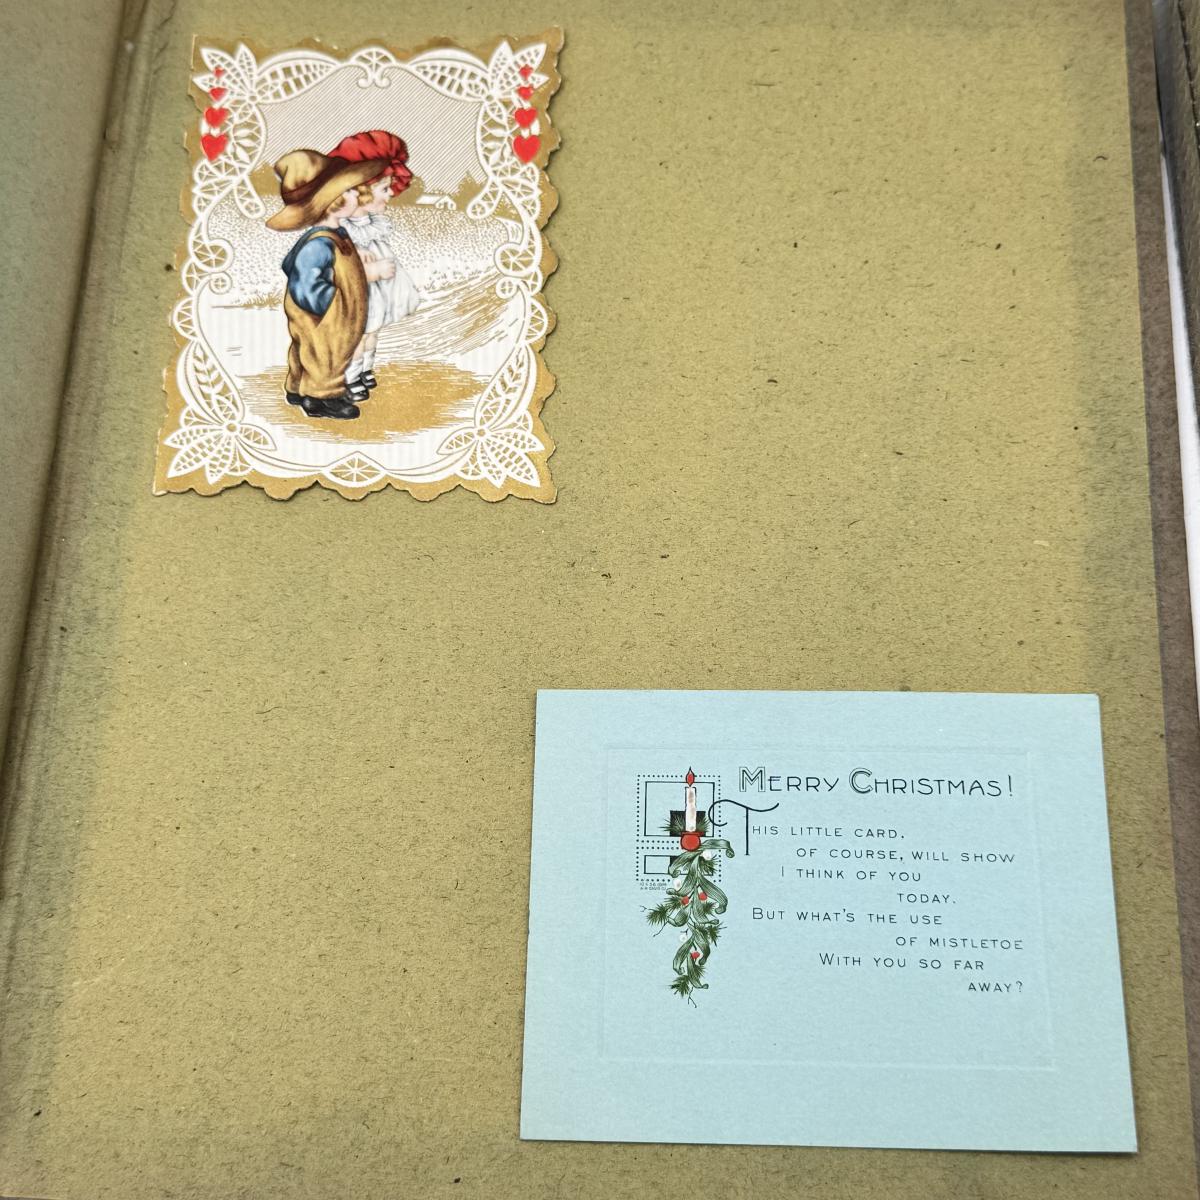 MERRY CHRISTMAS!
THIS LITTLE CARD,
OF COURSE, WILL SHOW
I THINK OF YOU
TODAY,
BUT WHAT'S THE USE
OF MISTLETOE
WITH YOU SO FAR
AWAY?